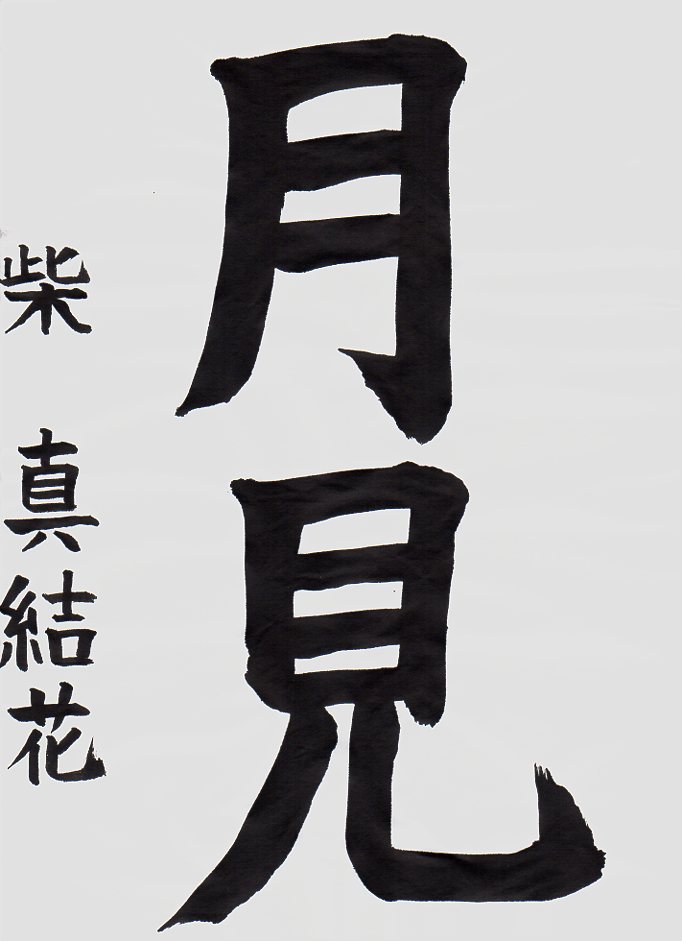 月見
柴 真結花